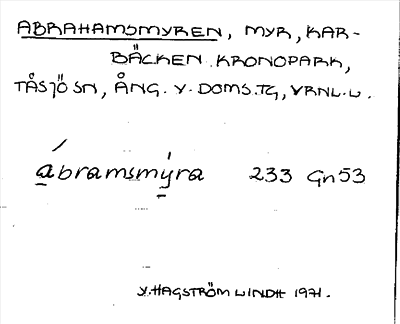 ABRAHAMSMYREN, MYR, KAR-
BÄCKEN KRONOPARK,
TÅSJÖ SN, ÅNG. V. DOMS.TG, VRNL.U.
ábramsmýra 233 Gn53
V. HAGSTRÖM LINDH 1971.